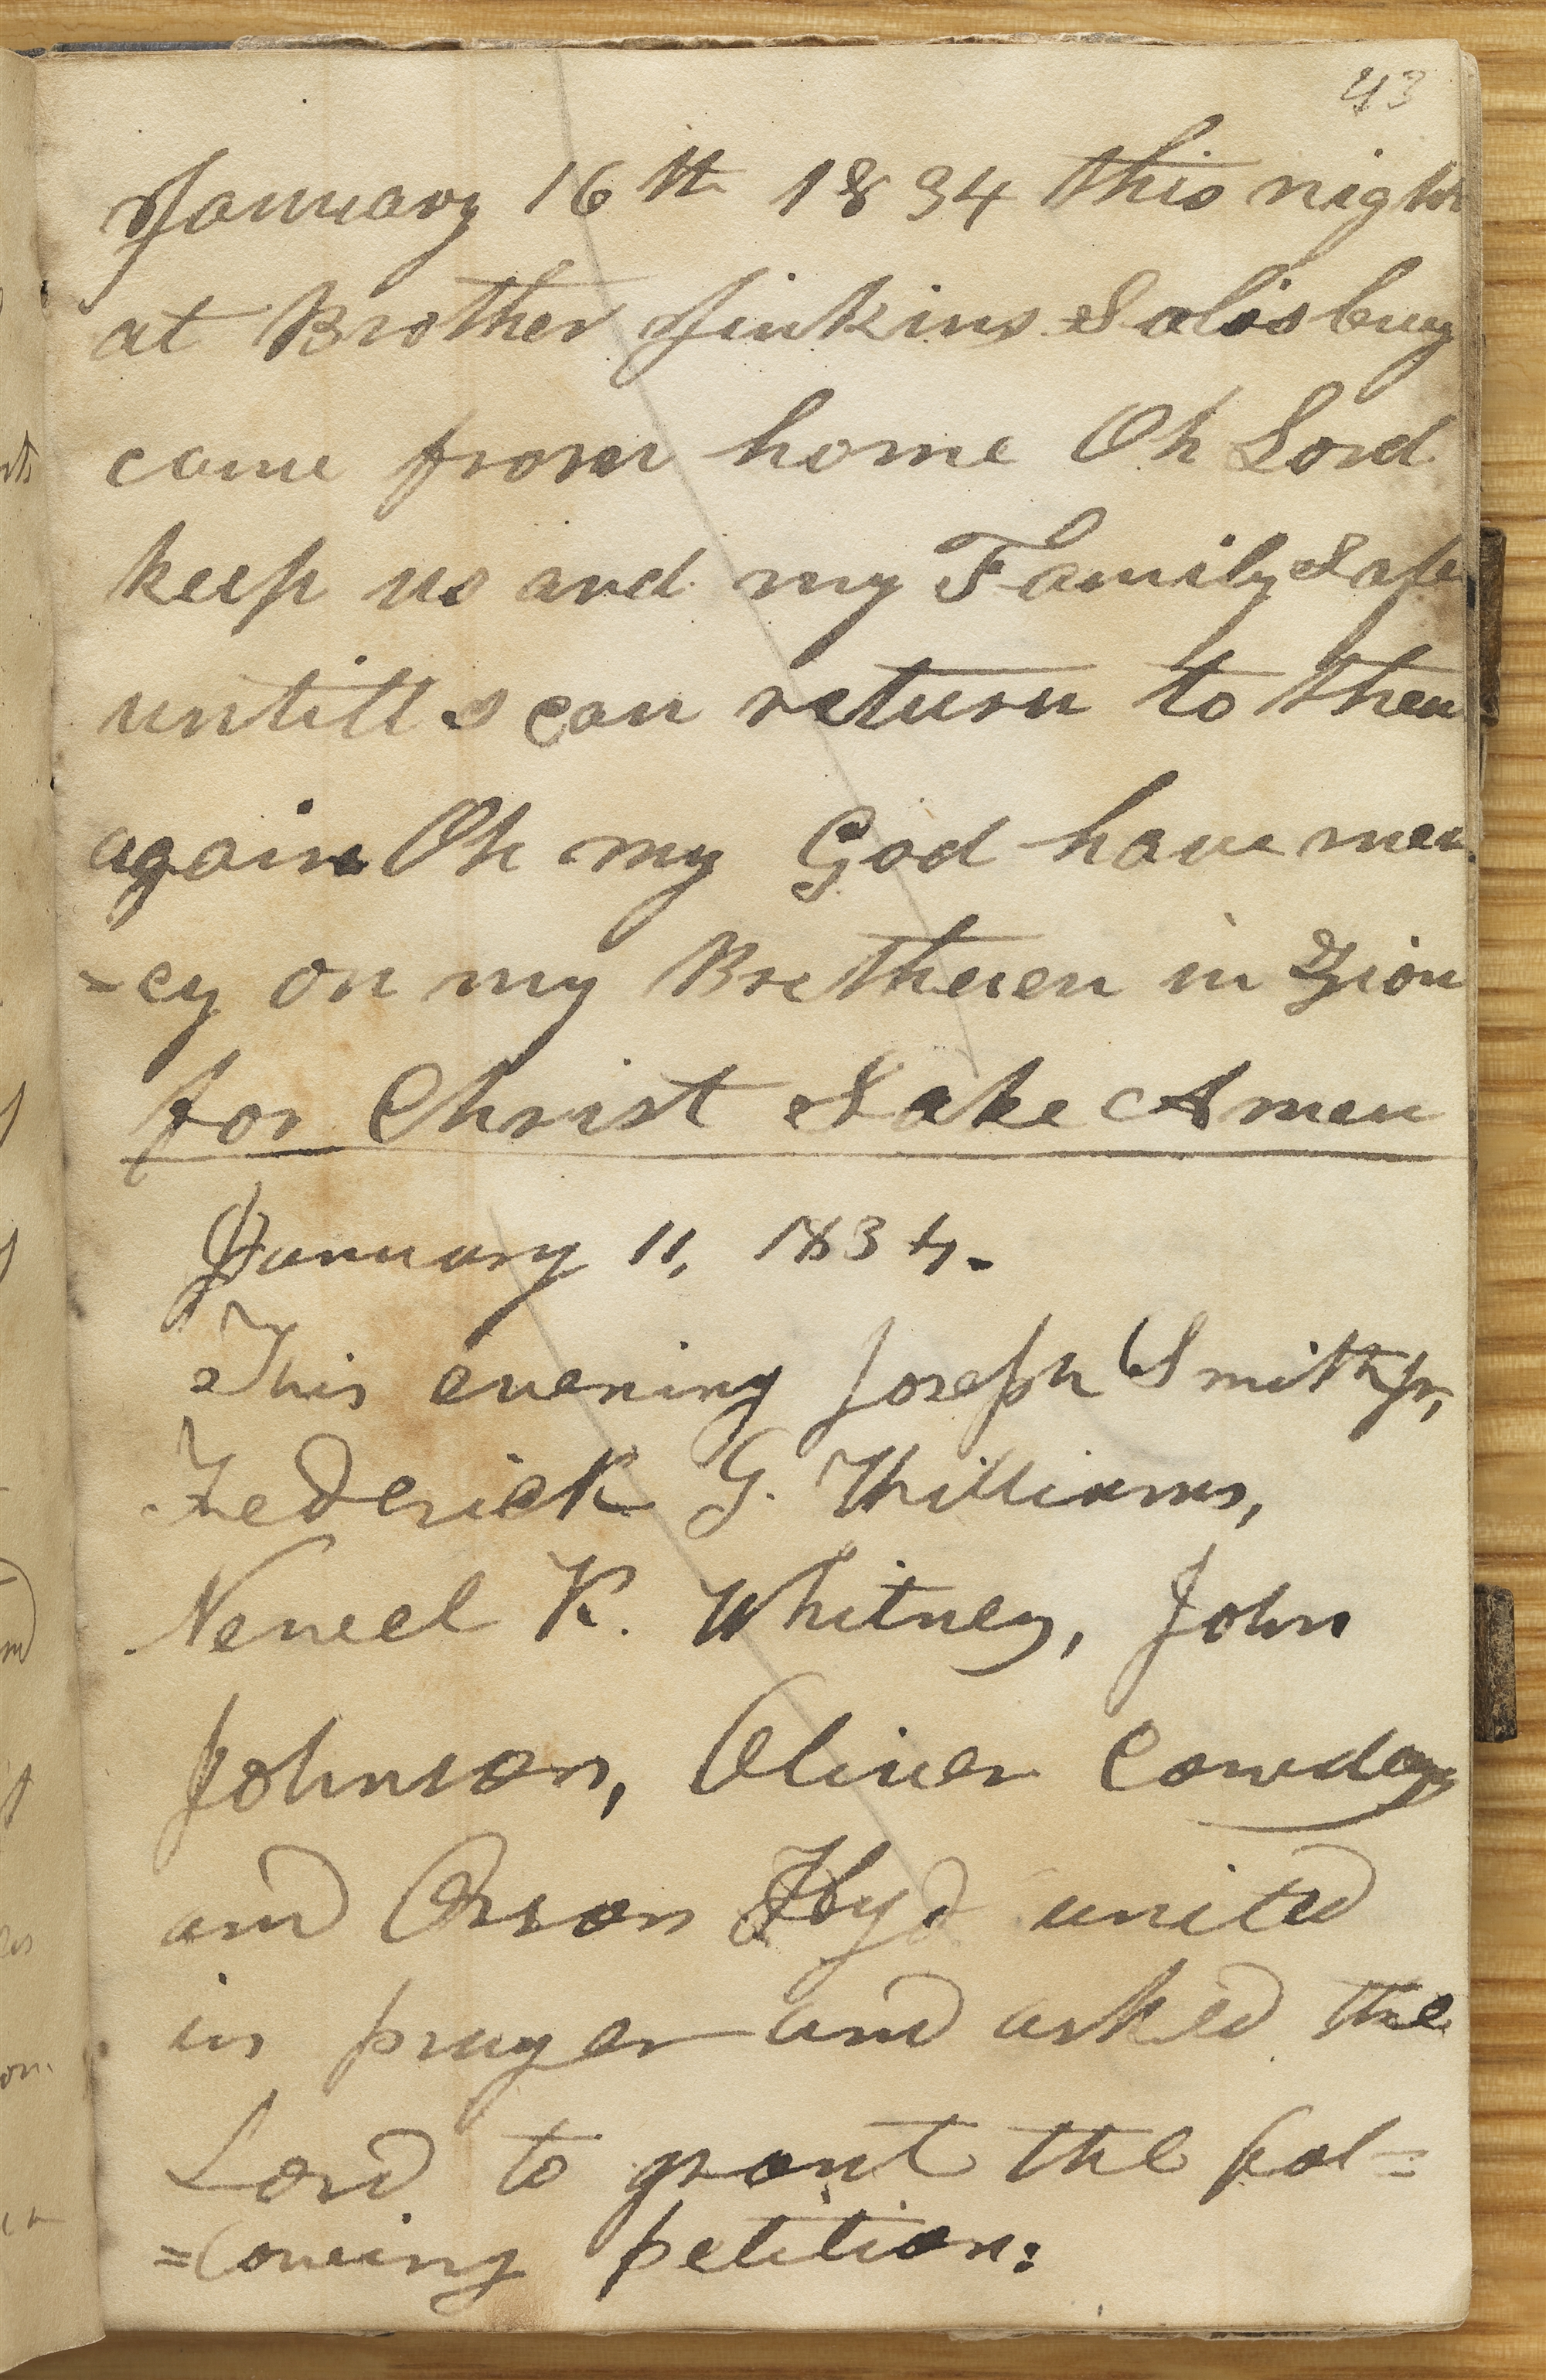 43
January 16th 1834 this night
at Brother Jinkins Salisbury
came from home Oh Lord
keep us and my Family safe
untill I can return to them
again Oh my God have mer
=cy on my Bretheren in Zion
for Christ Sake Amen
January 11, 1834.
This evening Joseph Smith Jr,
Frederick G. Williams,
Newel K. Whitney, John
Johnson, Oliver Cowdery
and Orson Hyde united
in prayer and asked the
Lord to grant the fol=
=lowing petition: